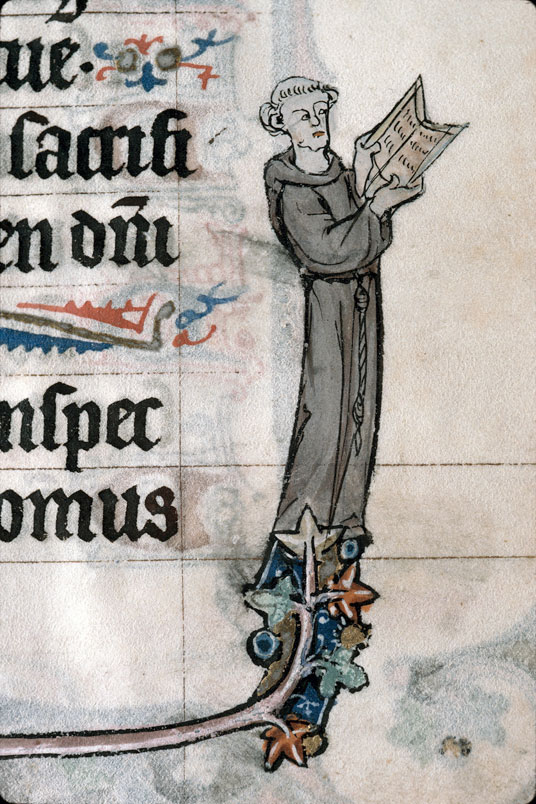 aue.
sacrifi
en dm̄i
nspec
omus